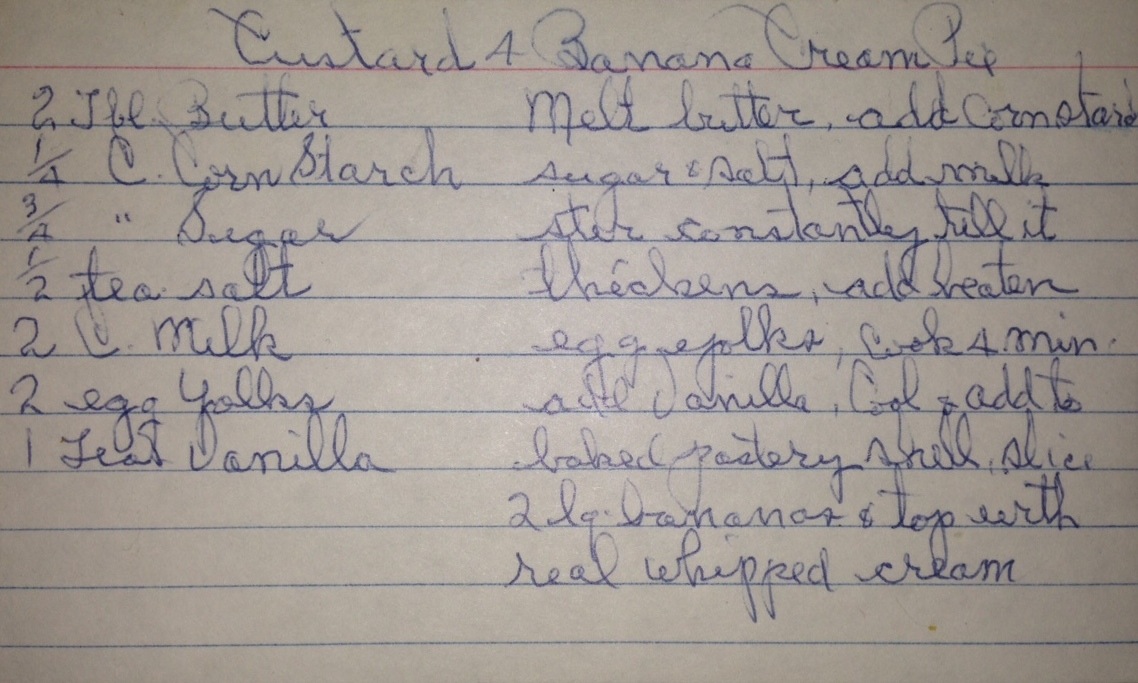 Custard 4 Banana Cream Pie
2 Tbl. Butter
1/4 C. Corn Starch
3/4 " Sugar
1/2 tea. salt
2 C. Milk
2 egg Yolks
1 Teas Vanilla
Melt butter, add Cornstarch
sugar & salt, add milk
ster constantly till it
thickens, add beaten
egg yolks, Cook 4 min.
add Vanilla, Cool & add to
baked pastery shell, slice
2 lg. bananas & top with
real whipped cream